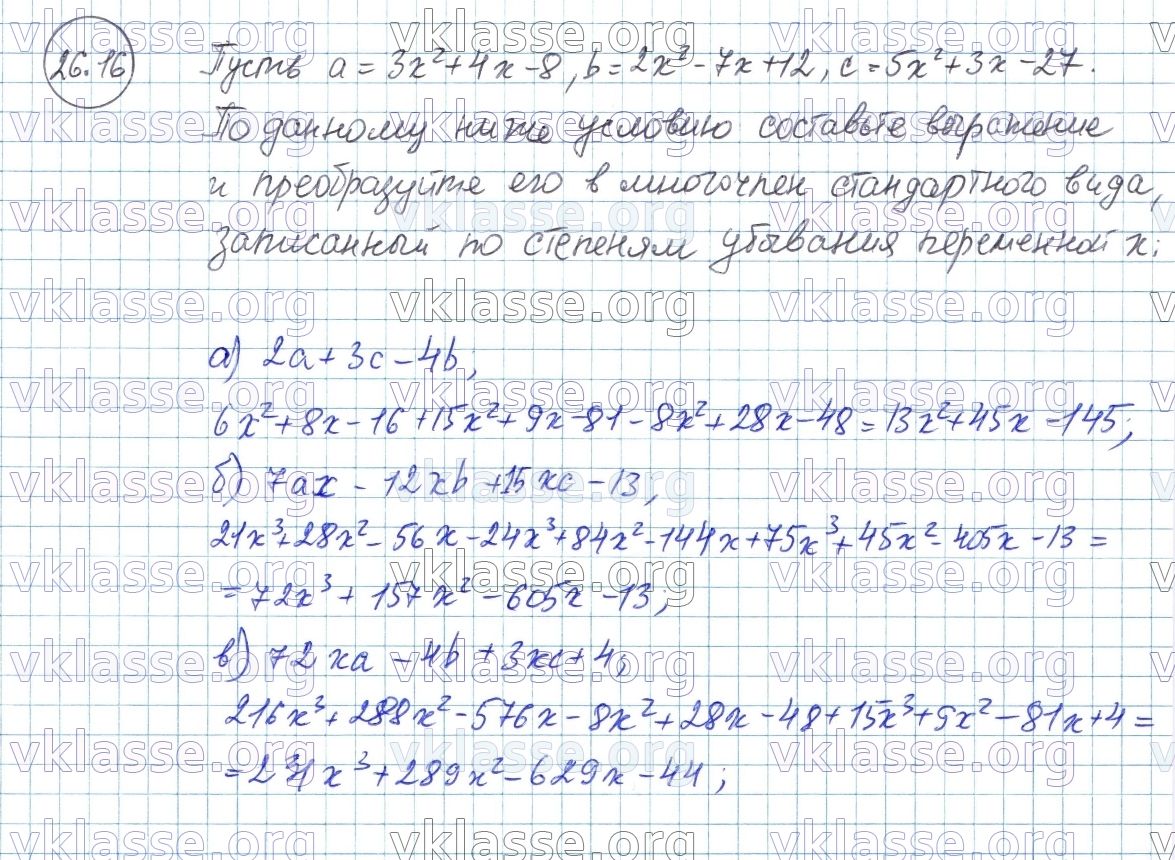 26.16 Пусть a = 3x² + 4x - 8, b = 2x² - 7x + 12, c = 5x² + 3x - 27.
По данному ниже условию составьте выражение
и преобразуйте его в многочлен стандартного вида,
записанный по степеням убывания переменной x:
а) 2a + 3c - 4b;
6x² + 8x - 16 + 15x² + 9x - 81 - 8x² + 28x - 48 = 13x² + 45x - 145;
б) 7ax - 12xb + 15xc - 13;
21x³ + 28x² - 56x - 24x³ + 84x² - 144x + 75x³ + 45x² - 405x - 13 =
= 72x³ + 157x² - 605x - 13;
в) 72xa - 4b + 3xc + 4;
216x³ + 288x² - 576x - 8x² + 28x - 48 + 15x³ + 9x² - 81x + 4 =
= 231x³ + 289x² - 629x - 44;
vklasse.org